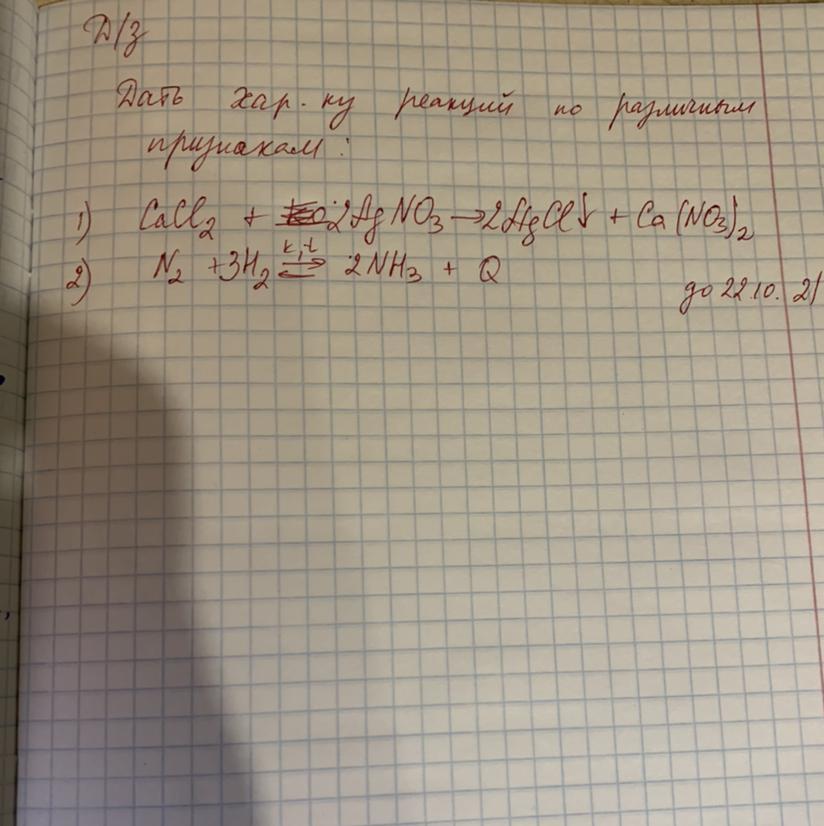 Д/з
Дать хар-ку реакций по различным
признакам:
1) CaCl₂ + 2AgNO₃ → 2AgCl↓ + Ca(NO₃)₂
2) N₂ + 3H₂ ⇄ 2NH₃ + Q
k, t
до 22.10. 21